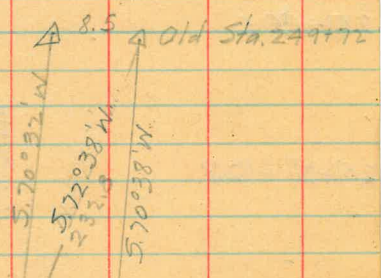 8.5
Old Sta. 249+72
S.70°32'W.
S.72°38'W.
232.8
S.70°38'W.